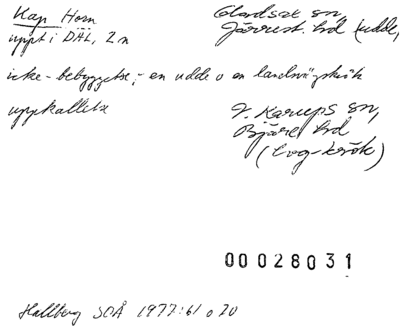 Kap Horn
uppt i DÄL, 2 n
Glostorp sn,
Järrest. hd (udde,
icke-bebyggelse; en udde o en landsvägskrök
uppkallelse
V. Karups sn,
Bjäre hd
(väg-krök)
00028031
Hallberg SOÅ 1977:61 o 70